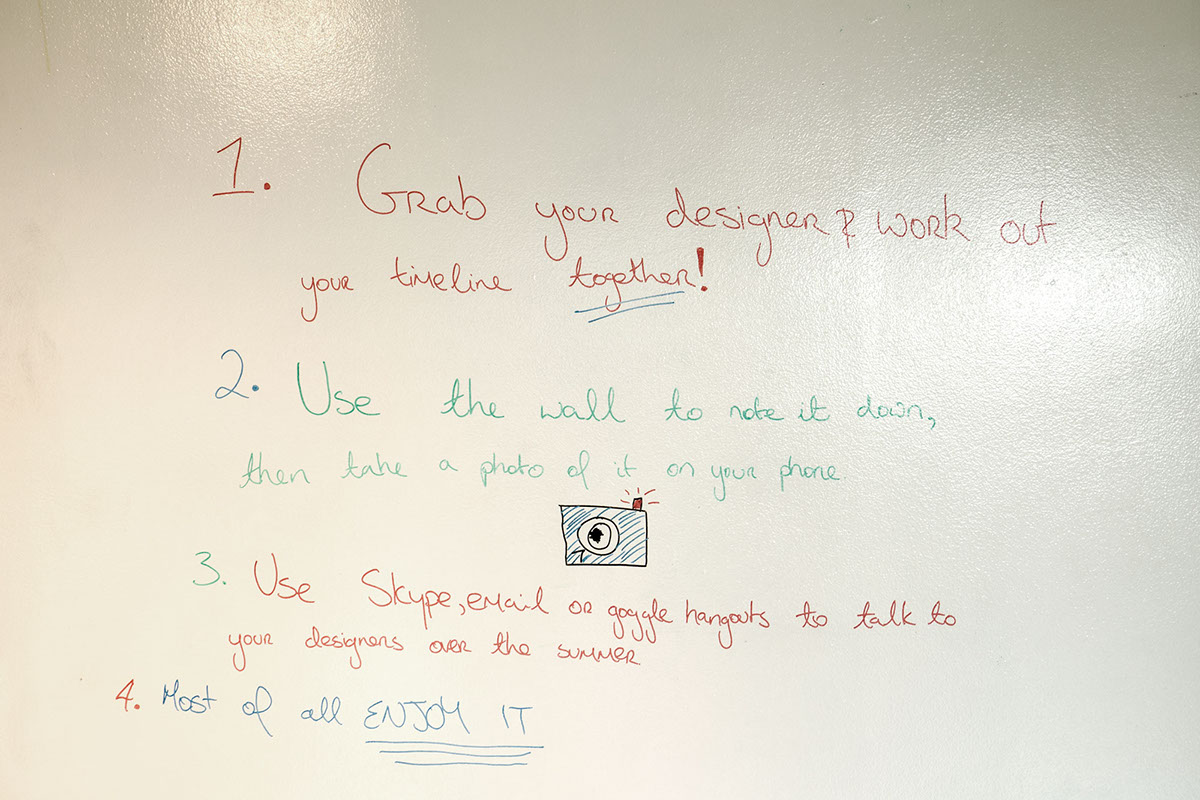 1. Grab your designer & work out
your timeline together!
2. Use the wall to note it down,
then take a photo of it on your phone.
3. Use Skype, email or goggle hangouts to talk to
your designers over the summer
4. Most of all ENJOY IT